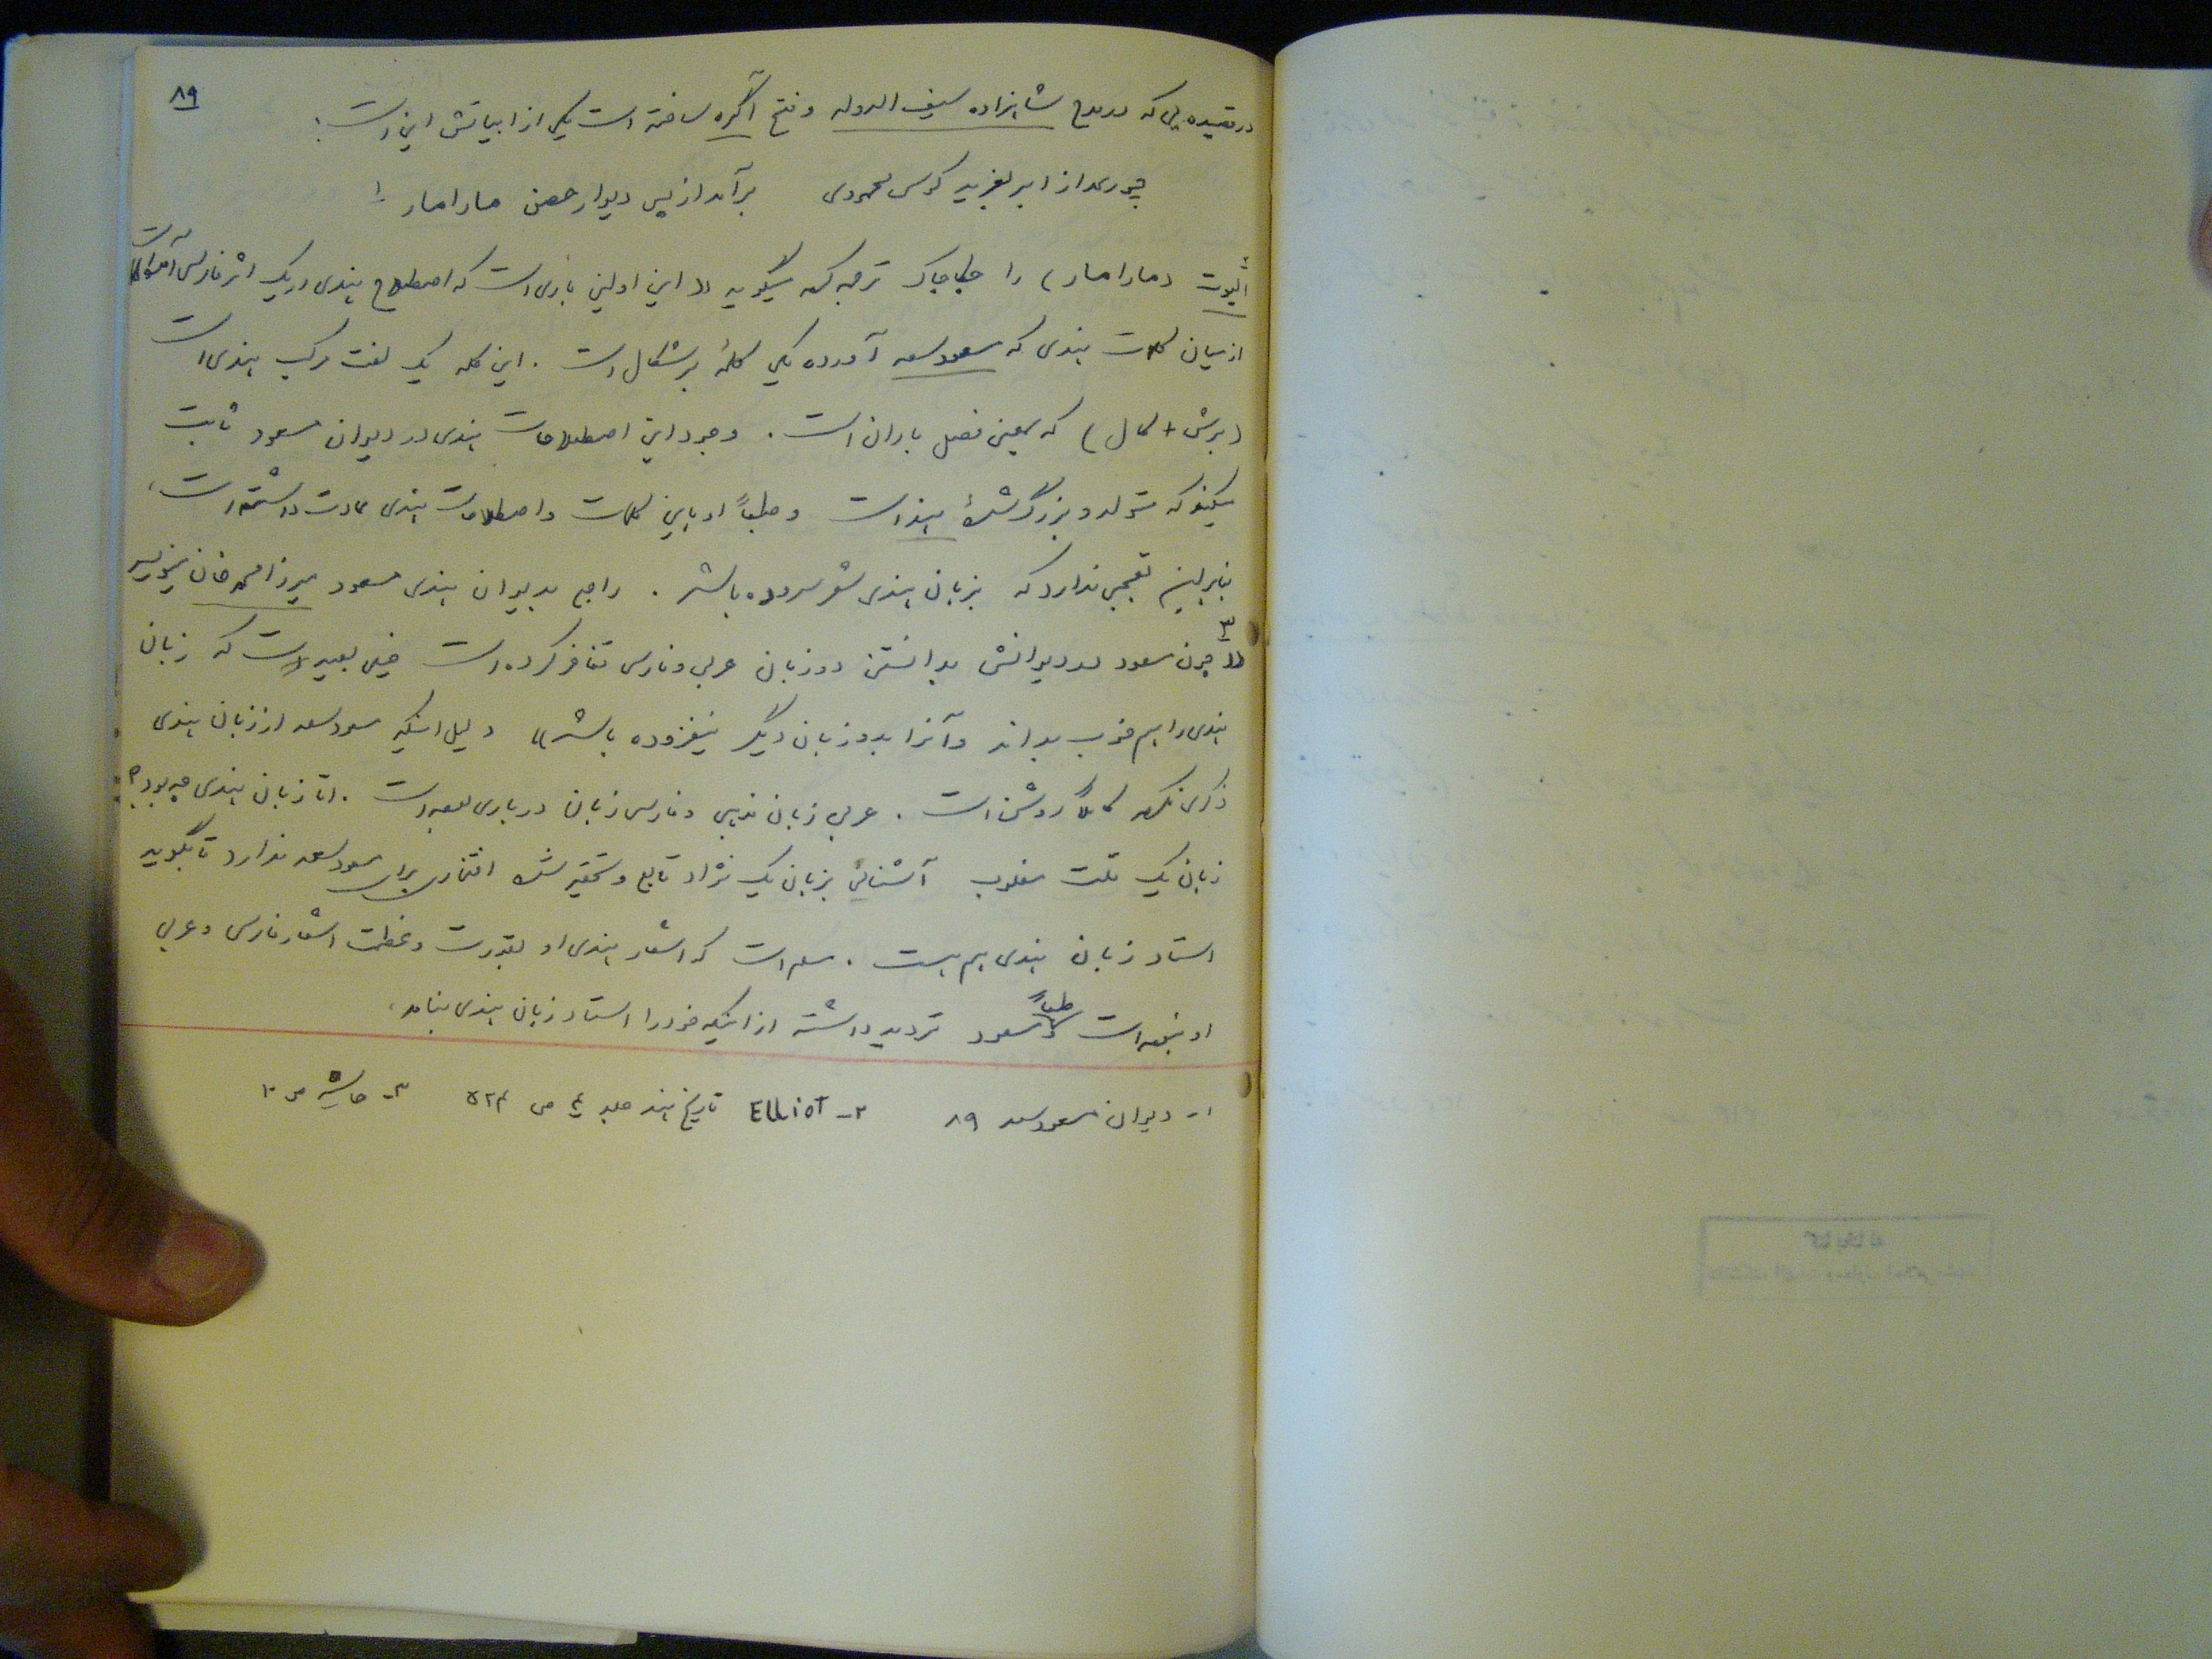 ۸۹
در قصیده یی که در مدح شاهزاده سیف الدوله و فتح آگره ساخته است یکی از ابیاتش این است:
چو رعد از ابر بغرید کوس محمودی برآمد از پس دیوار حصن مارامار ۱
الیوت ۲ (مارامار) را ترجمه کرده میگوید «این اولین باری است که اصطلاح هندی در یک اثر فارسی آمده است»
از میان کلمات هندی که مسعود سعد آورده یکی کلمهٔ برشکال است. این کلمه یک لغت مرکب هندی است
(برش + کال) که بمعنی فصل باران است. وجود این اصطلاحات هندی در دیوان مسعود ثابت
میکند که متولد و بزرگ شدهٔ هند است و طبعاً او باین کلمات و اصطلاحات هندی عادت داشته است،
بنابراین تعجبی ندارد که بزبان هندی شعر سروده باشد. راجع بدیوان هندی مسعود میرزا محمد خان مینویسد
۳ «چون مسعود در دیوانش بدانستن دو زبان عربی و فارسی تفاخر کرده است خیلی بعید است که زبان
هندی را هم خوب بداند و آنرا بدو زبان دیگر نیفزوده باشد» دلیل اینکه مسعود سعد از زبان هندی
ذکری نکرده کاملاً روشن است. عربی زبان مذهبی و فارسی زبان درباری بوده است. اما زبان هندی چه بود؟
زبان یک ملت مغلوب آشنائی بزبان یک نژاد تابع و تحقیر شده افتخاری برای مسعود سعد ندارد تا بگوید
استاد زبان هندی هم هست. مسلم است که اشعار هندی او بقدرت و عظمت اشعار فارسی و عربی
او نبوده است و طبعاً مسعود تردید داشته از اینکه خود را استاد زبان هندی بنامد.
۱- دیوان مسعود سعد ۸۹ ۲- ELLiOT تاریخ هند جلد ۴ ص ۵۲۴ ۳- حاشیه ص ۱۰